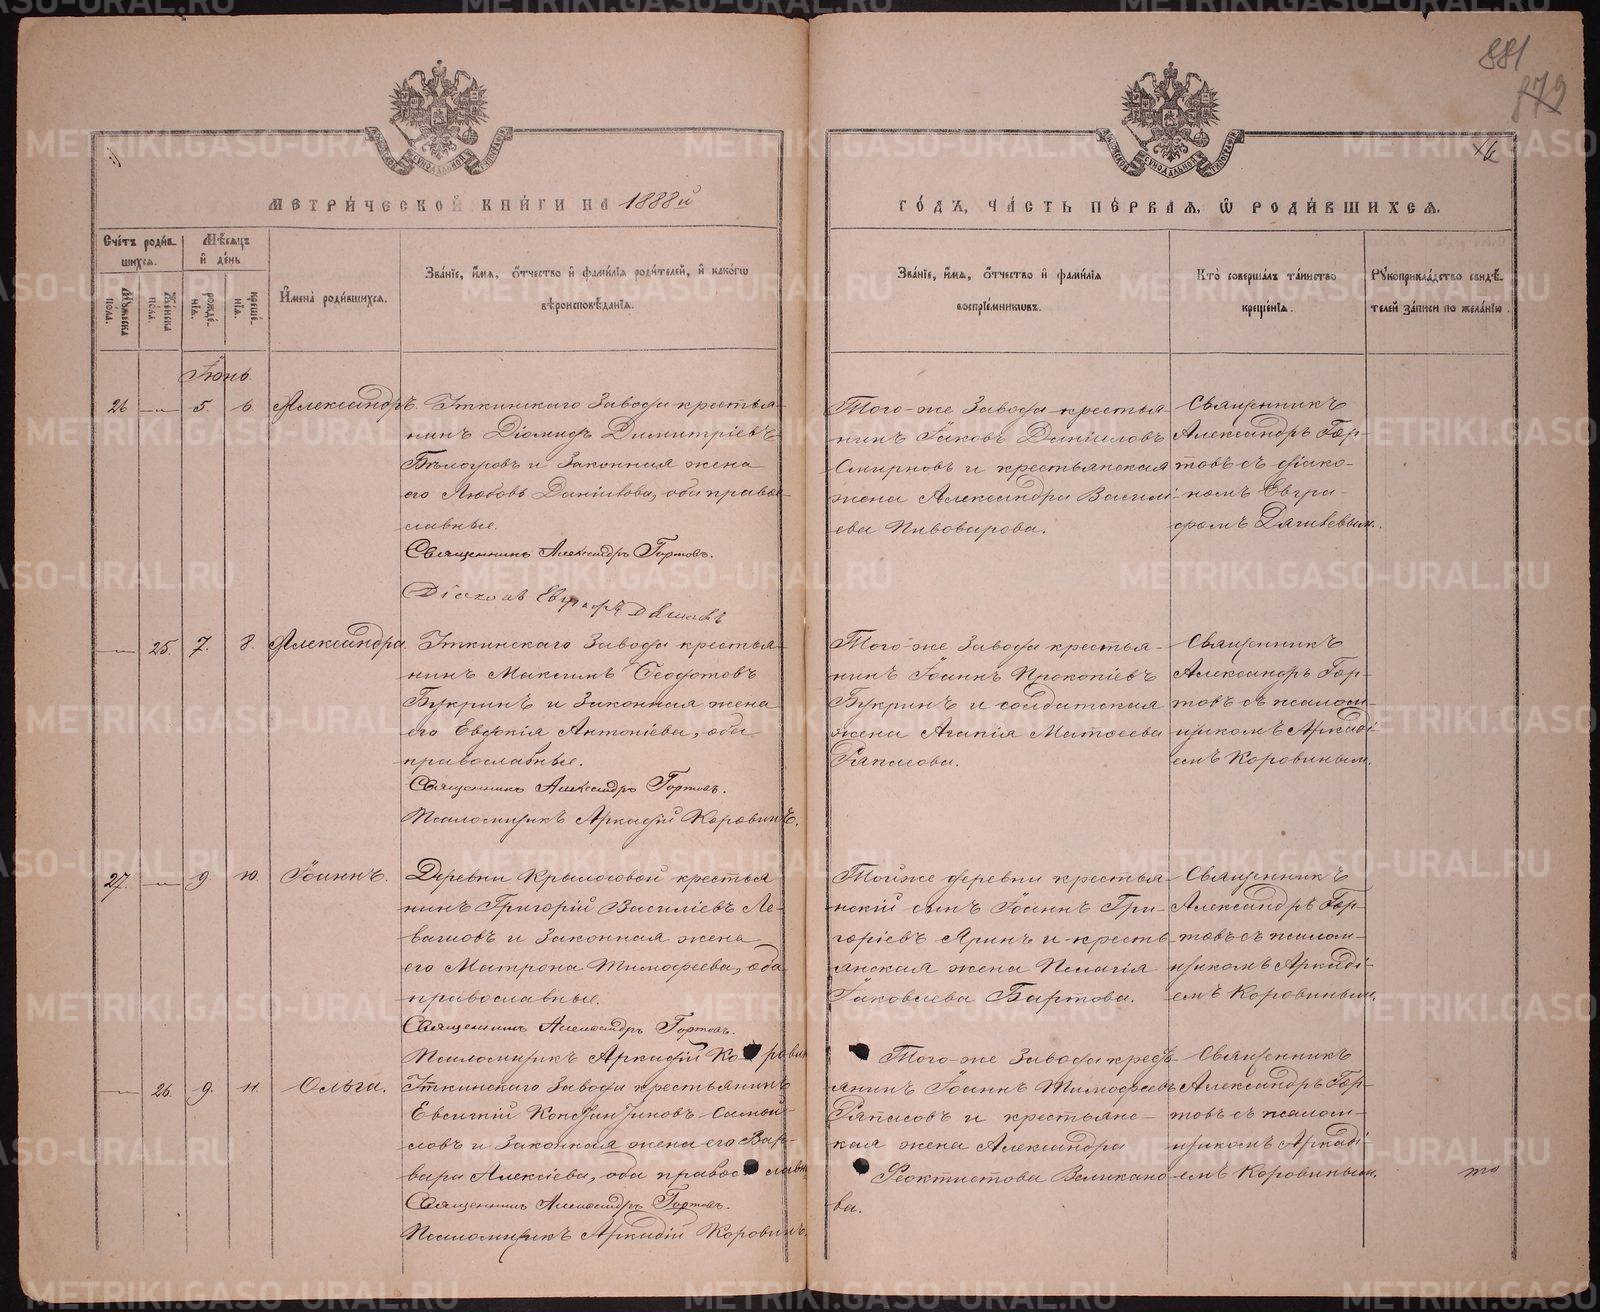 881
879
МЕТРИ́ЧЕСКОЙ КНИ́ГИ НА 1888й
ГО́ДЪ, ЧА́СТЬ ПЕ́РВАЯ, Ѽ РОДИ́ВШИХСЯ.
Сче́тъ роди́вшихся.
Мꙋ́жеска пола.
Же́нска пола.
Мѣ́сяцъ и де́нь
рожде́нїя.
креще́нїя.
И҆мена̀ роди́вшихся.
Зва́нїе, и҆́мя, ѻ҆́тчество и҆ фами́лїя роди́телей, и҆ како́гѡ вѣроисповѣ́данїя.
Зва́нїе, и҆́мя, ѻ҆́тчество и҆ фами́лїя воспрїе́мникѡвъ.
Кто̀ соверша́лъ та́инство креще́нїя.
Рꙋкоприкла́дство свидѣ́телей за́писи по жела́нїю.
Іюнь.
26 — 5. 6. Александръ. Иткинскаго Завода крестья-
нинъ Діомидъ Димитріевъ
Бѣлогровъ и законная жена
его Любовь Даніилова, оба право-
славные.
Священникъ Александръ Гортовъ.
Діаконъ Евграфъ
Того-же Завода крестья-
нинъ Іаковъ Даніиловъ
Смирновъ и крестьянская
жена Александра Василі-
ева Пивоварова.
Священникъ
Александръ Гор-
товъ съ діако-
номъ Евгра-
фомъ
— 25. 7. 8. Александра. Иткинскаго Завода крестья-
нинъ Максимъ Ѳеодотовъ
Букринъ и законная жена
его Евдокія Антоніева, оба
православные.
Священникъ Александръ Гортовъ.
Псаломщикъ Аркадій Коровинъ.
Того-же Завода крестья-
нинъ Іоаннъ Прокопіевъ
Букринъ и солдатская
жена Агапія Матѳеева
Рапасова.
Священникъ
Александръ Гор-
товъ съ псалом-
щикомъ Аркаді-
емъ Коровинымъ.
27. — 9. 10. Іоаннъ. Деревни Крылосовой крестья
нинъ Григорій Василіевъ Ле-
вашовъ и законная жена
его Матрона Тимофеева, оба
православные.
Священникъ Александръ Гортовъ.
Псаломщикъ Аркадій Коровинъ
Той же деревни крестья-
нскій сынъ Іоаннъ Гри-
горіевъ Яринъ и кресть-
янская жена Пелагія
Іаковлева Бартова.
Священникъ
Александръ Гор-
товъ съ псалом-
щикомъ Аркаді-
емъ Коровинымъ.
— 26. 9. 11. Ольга. Иткинскаго Завода крестьянинъ
Евсигній Константиновъ Самой-
ловъ и законная жена его Вар-
вара Алексіева, оба православные
Священникъ Александръ Гортовъ.
Псаломщикъ Аркадій Коровинъ.
Того-же Завода кресть
янинъ Іоаннъ Тимофеевъ
Рапасовъ и крестьянс-
кая жена Александра
Феоктистова Великано-
ва.
Священникъ
Александръ Гор-
товъ съ псалом-
щикомъ Аркаді-
емъ Коровинымъ.
METRIKI.GASO-URAL.RU